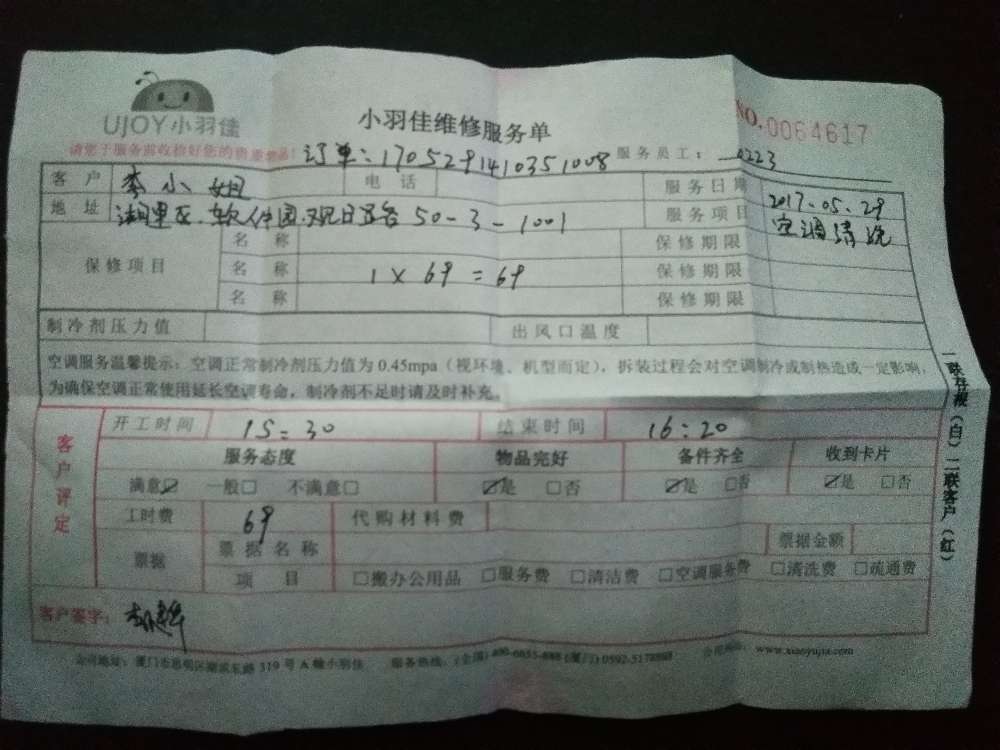 UJOY小羽佳
小羽佳维修服务单
NO.0064617
请您于服务前收拾好您的贵重物品!
订单:1705291410351008
服务员工: 0223
客户 李小姐 电话 服务日期 2017.05.29
地址 湖里区.软件园.观日路 50-3-1001 服务项目 空调清洗
保修项目 名称 保修期限
名称 1×69=69 保修期限
名称 保修期限
制冷剂压力值 出风口温度
空调服务温馨提示:空调正常制冷剂压力值为0.45mpa(视环境、机型而定),拆装过程会对空调制冷或制热造成一定影响,
为确保空调正常使用延长空调寿命,制冷剂不足时请及时补充。
客户评定
开工时间 15:30 结束时间 16:20
服务态度 物品完好 备件齐全 收到卡片
满意☑ 一般□ 不满意□ ☑是 □否 ☑是 □否 ☑是 □否
工时费 69 代购材料费
票据 票据名称 票据金额
项目 □搬办公用品 □服务费 □清洁费 □空调服务费 □清洗费 □疏通费
客户签字:
公司地址:厦门市思明区湖滨东路319号A幢小羽佳 服务热线:(全国)400-6655-888(厦门)0592-5178888 公司网址: www.xiaoyujia.com
一联存根(白)二联客户(红)